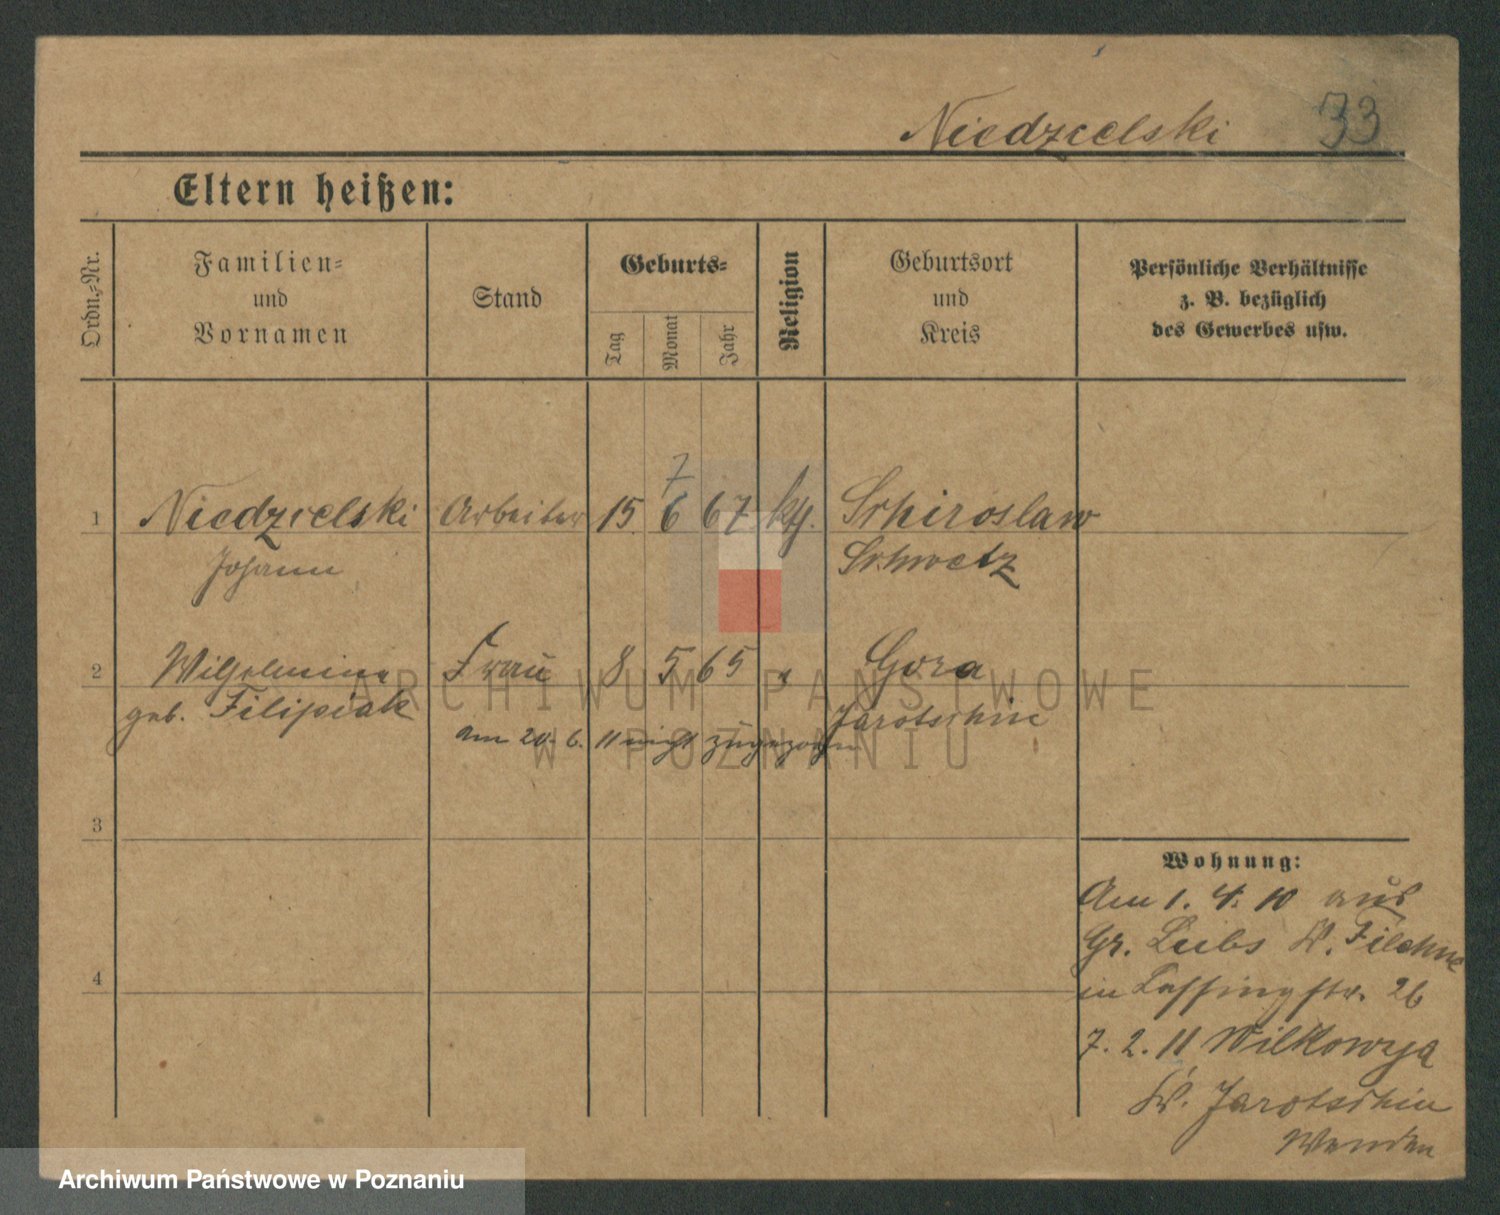 Niedzielski 33
Eltern heißen:
Ordn.-Nr.
Familien-
und
Vornamen
Stand
Geburts-
Tag
Monat
Jahr
Religion
Geburtsort
und
Kreis
Persönliche Verhältnisse
z. B. bezüglich
des Gewerbes usw.
7
1 Niedzielski Arbeiter 15 6 67 kth. Schiroslaw
Johann Schwetz
2 Wilhelmine Frau 8 5 65 " Gora
geb. Filipiak Jarotschin
am 20. 6. 11 nicht zugezogen
ARCHIWUM PAŃSTWOWE
W POZNANIU
3
Wohnung:
Am 1. 4. 10 aus
Gr. Lubs K. Filehne
4
in Lessingstr. 26
7. 2. 11 Wilkowya
K. Jarotschin
Archiwum Państwowe w Poznaniu